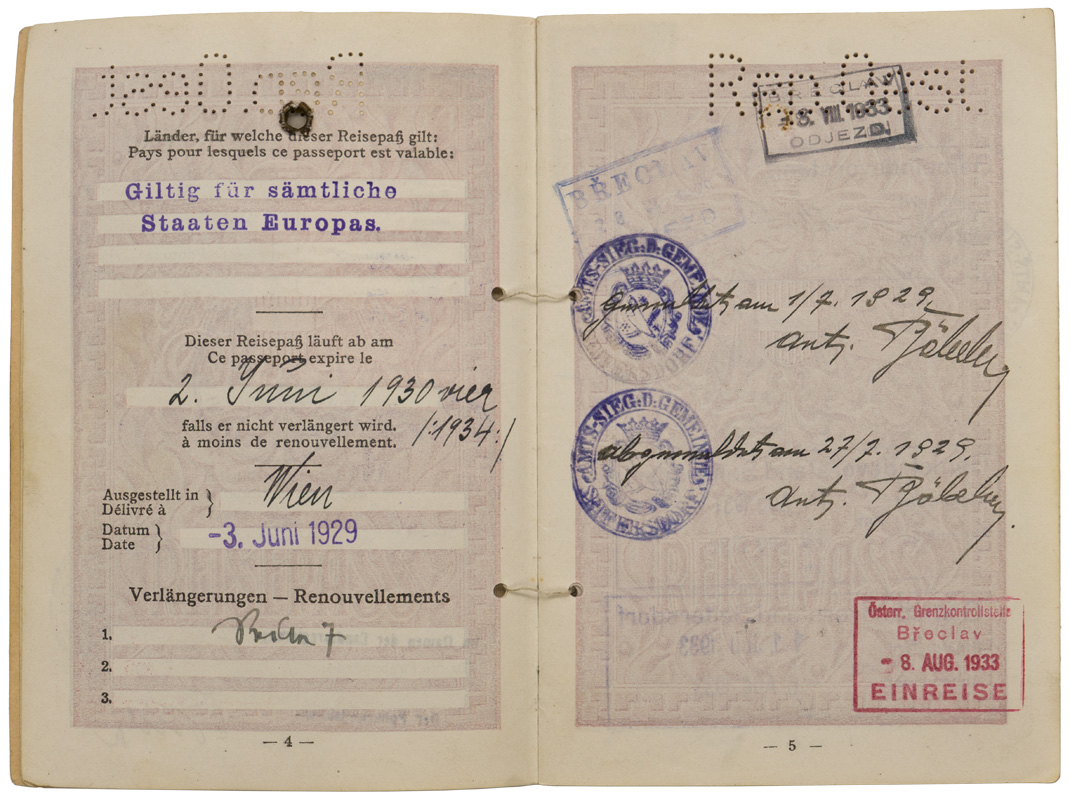 Länder, für welche dieser Reisepaß gilt:
Pays pour lesquels ce passeport est valable:
Giltig für sämtliche
Staaten Europas.
Dieser Reisepaß läuft ab am
Ce passeport expire le
2. Juni 1930 vier
falls er nicht verlängert wird.
à moins de renouvellement.
/:1934:/
Wien
Ausgestellt in
Délivré à
Datum
Date
-3. Juni 1929
Verlängerungen — Renouvellements
1.
2.
3.
— 4 —
Rep. Öst.
BRECLAV
- 8. VIII. 1933
ODJEZD
BŘECLAV
AMTS-SIEG. D. GEMEINDE
am 1/7. 1929.
AMTS-SIEG. D. GEMEINDE
abgemeldet am 27/7. 1929.
Österr. Grenzkontrollstelle
Břeclav
- 8. AUG. 1933
EINREISE
— 5 —